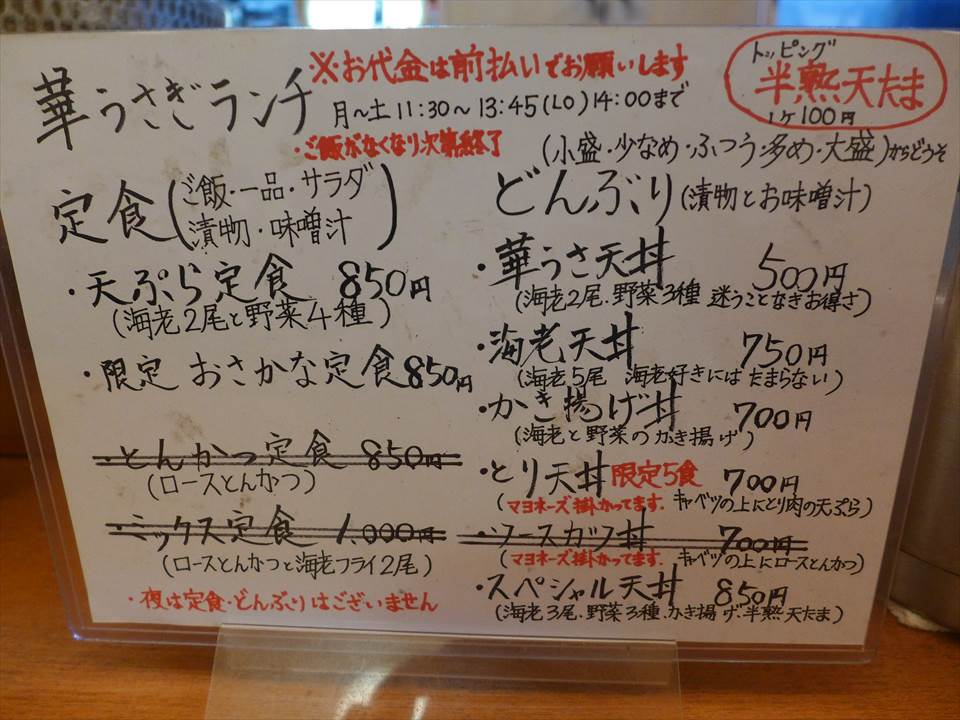 華うさぎランチ
※お代金は前払いでお願いします
月～土 11:30～13:45(LO)14:00まで
・ご飯がなくなり次第終了
トッピング
半熟天たま
1ケ100円
(小盛・少なめ・ふつう・多め・大盛)からどうぞ
定食(ご飯・一品・サラダ
漬物・味噌汁)
・天ぷら定食 850円
(海老2尾と野菜4種)
・限定 おさかな定食850円
・とんかつ定食 850円
(ロースとんかつ)
・ミックス定食 1,000円
(ロースとんかつと海老フライ2尾)
・夜は定食・どんぶりはございません
どんぶり(漬物とお味噌汁)
・華うさ天丼 500円
(海老2尾.野菜3種 迷うことなきお得さ)
・海老天丼 750円
(海老5尾 海老好きにはたまらない)
・かき揚げ丼 700円
(海老と野菜のかき揚げ)
・とり天丼 限定5食 700円
(マヨネーズ掛かってます. キャベツの上にとり肉の天ぷら)
・ソースカツ丼 700円
(マヨネーズ掛かってます. キャベツの上にロースとんかつ)
・スペシャル天丼 850円
(海老3尾.野菜3種.かき揚げ.半熟天たま)